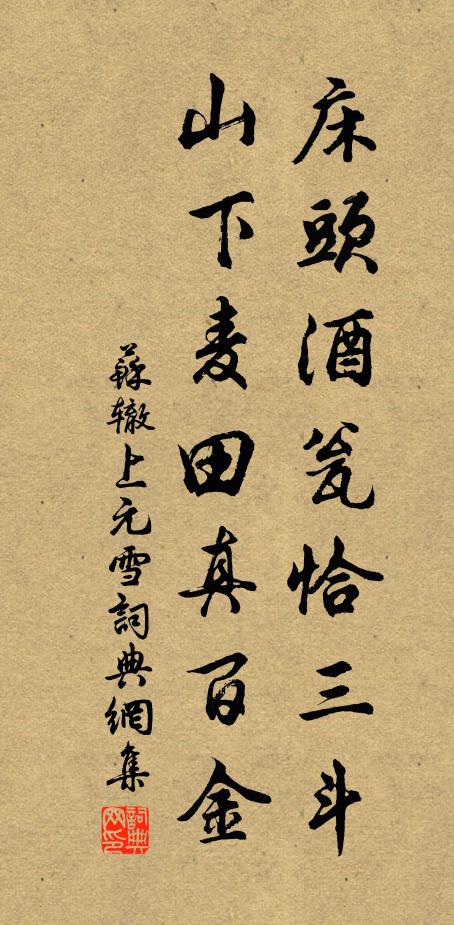 床頭酒瓮恰三斗
山下麦田真百金
蘇辙上元雪詞典網集
詞典网印